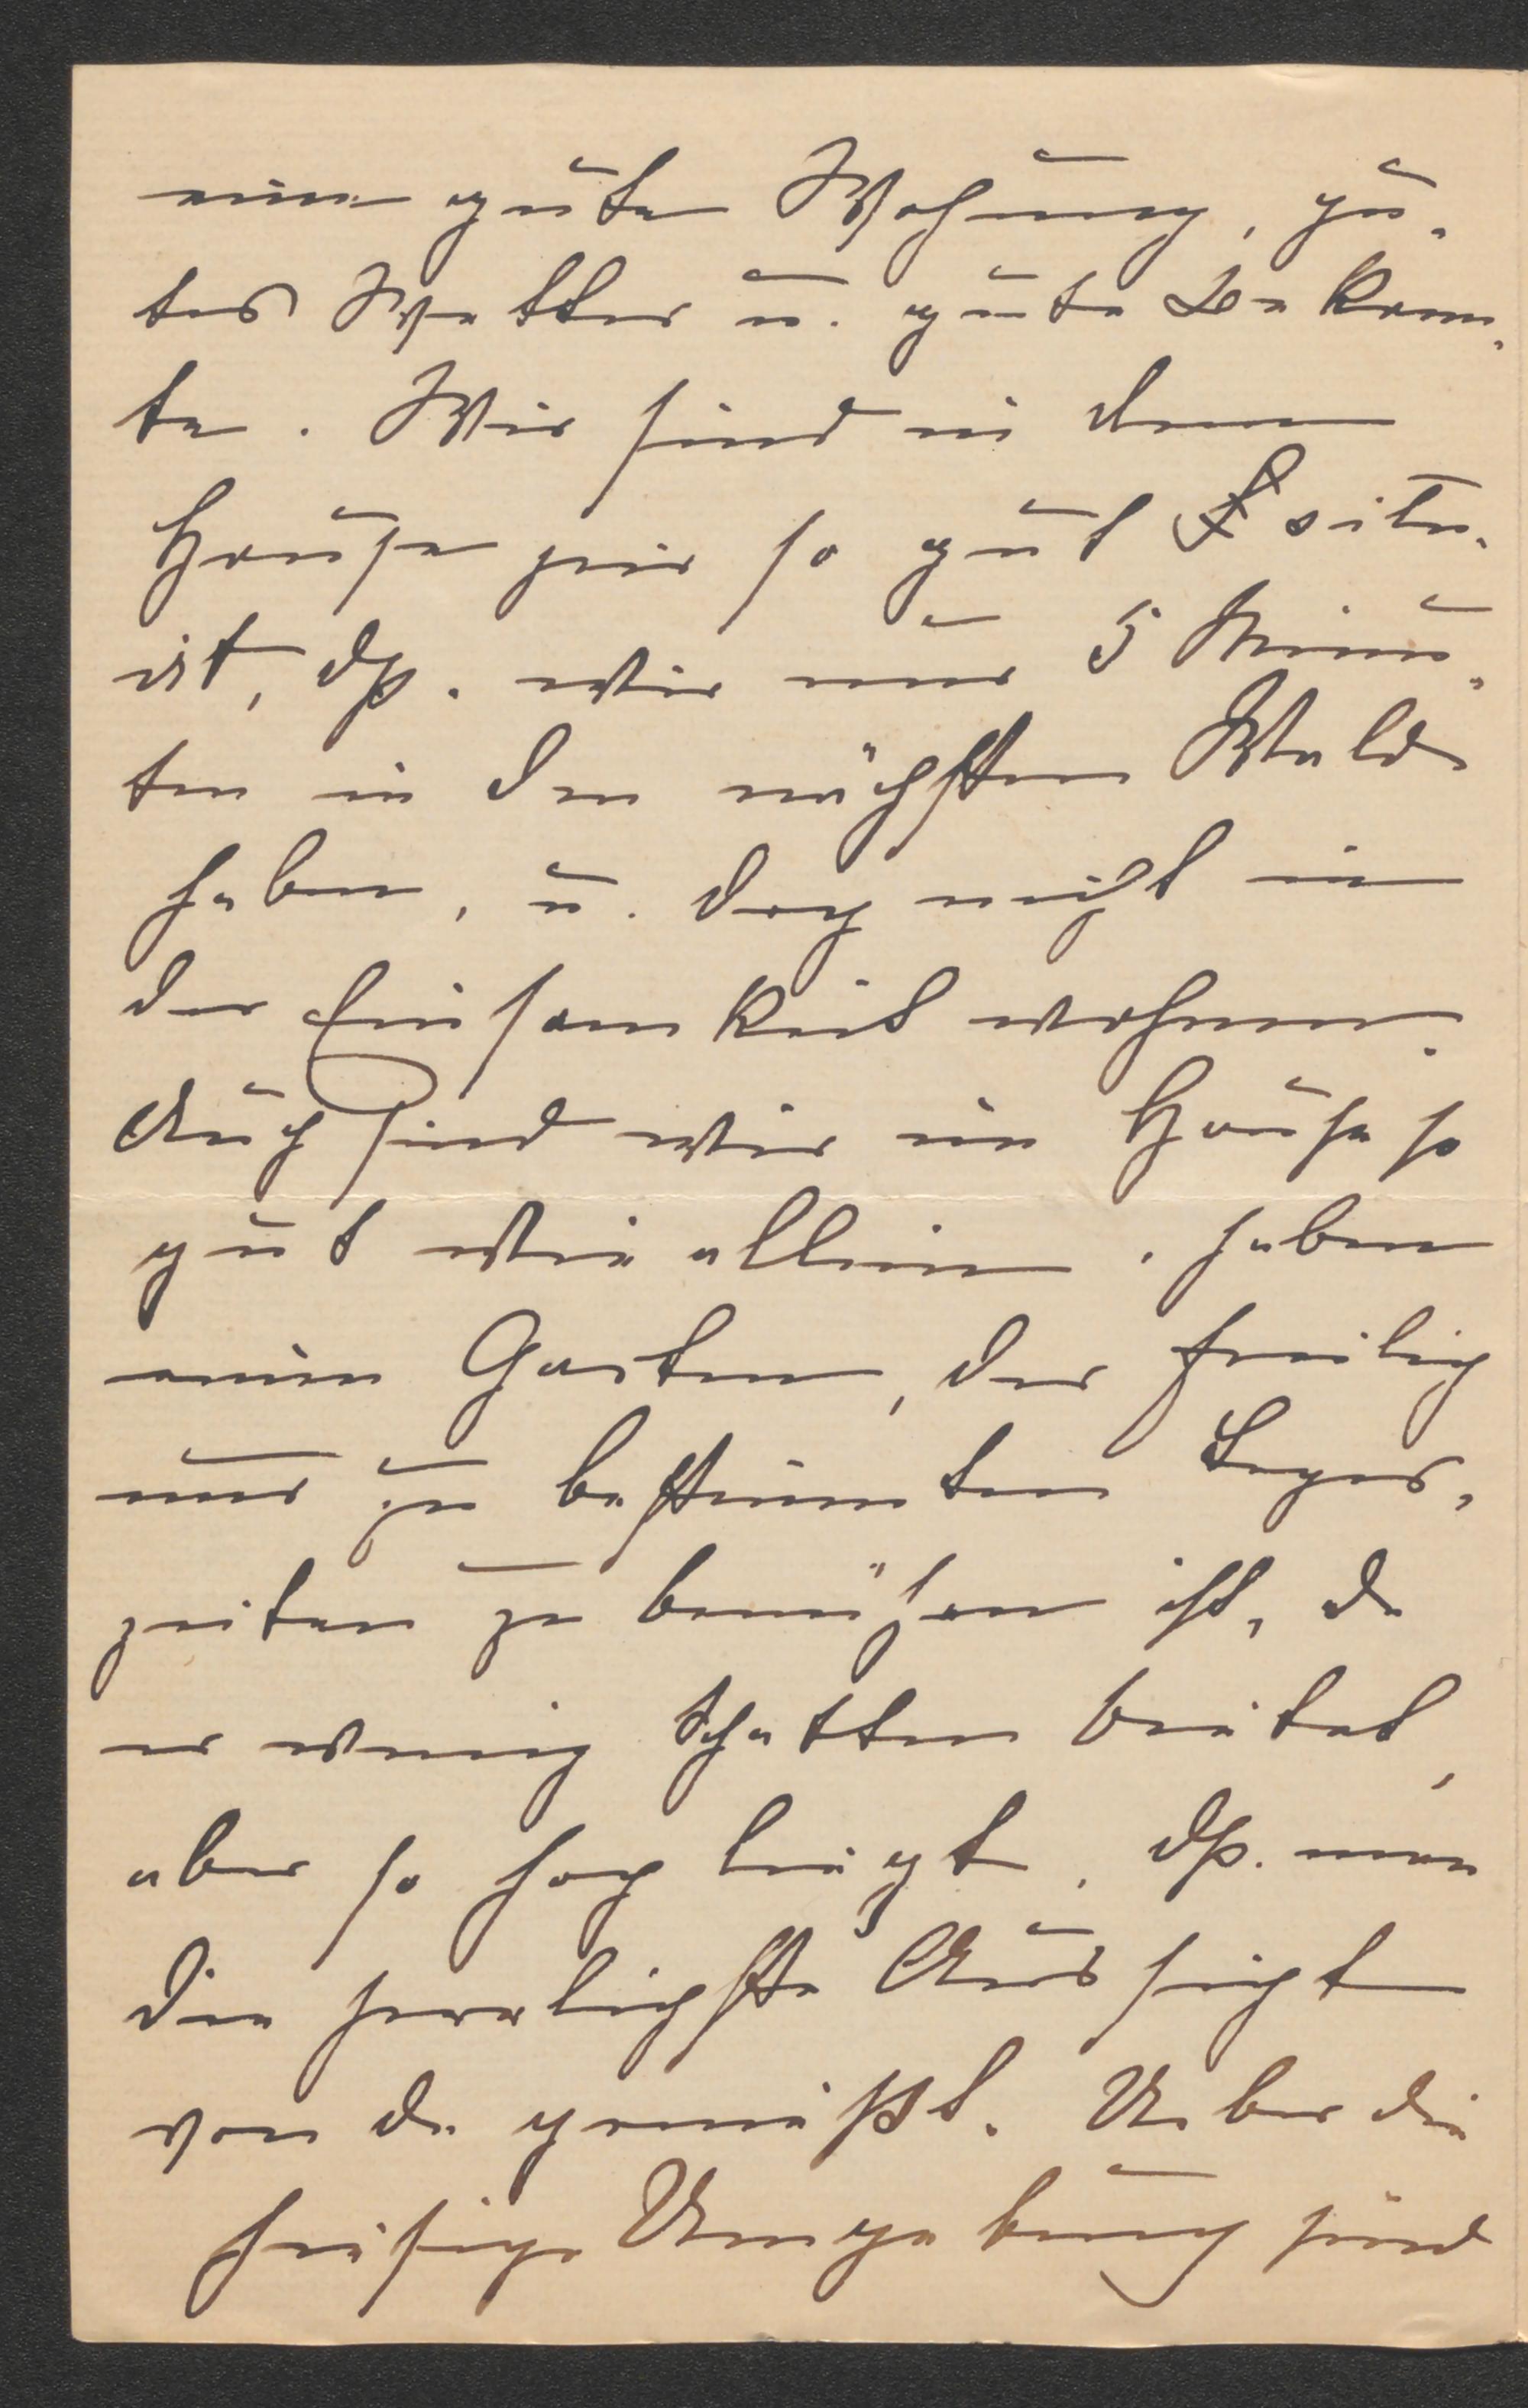 eine gute Wohnung, gu-
tes Wetter u. gute Bekann-
te. Wir sind in dem
Hause hier so gut situ-
irt, dß. wir nur 5 Minu-
ten in den nächsten Wald
haben, u. doch nicht in
der Einsamkeit wohnen.
Auch sind wir im Hause so
gut wie allein, haben
einen Garten, der freilich
nur zu bestimmten Tages-
zeiten zu benützen ist, da
er wenig Schatten bietet,
aber so hoch liegt, dß. man
die herrlichste Aussicht
von da genießt. Ueber die
hiesige Umgebung sind